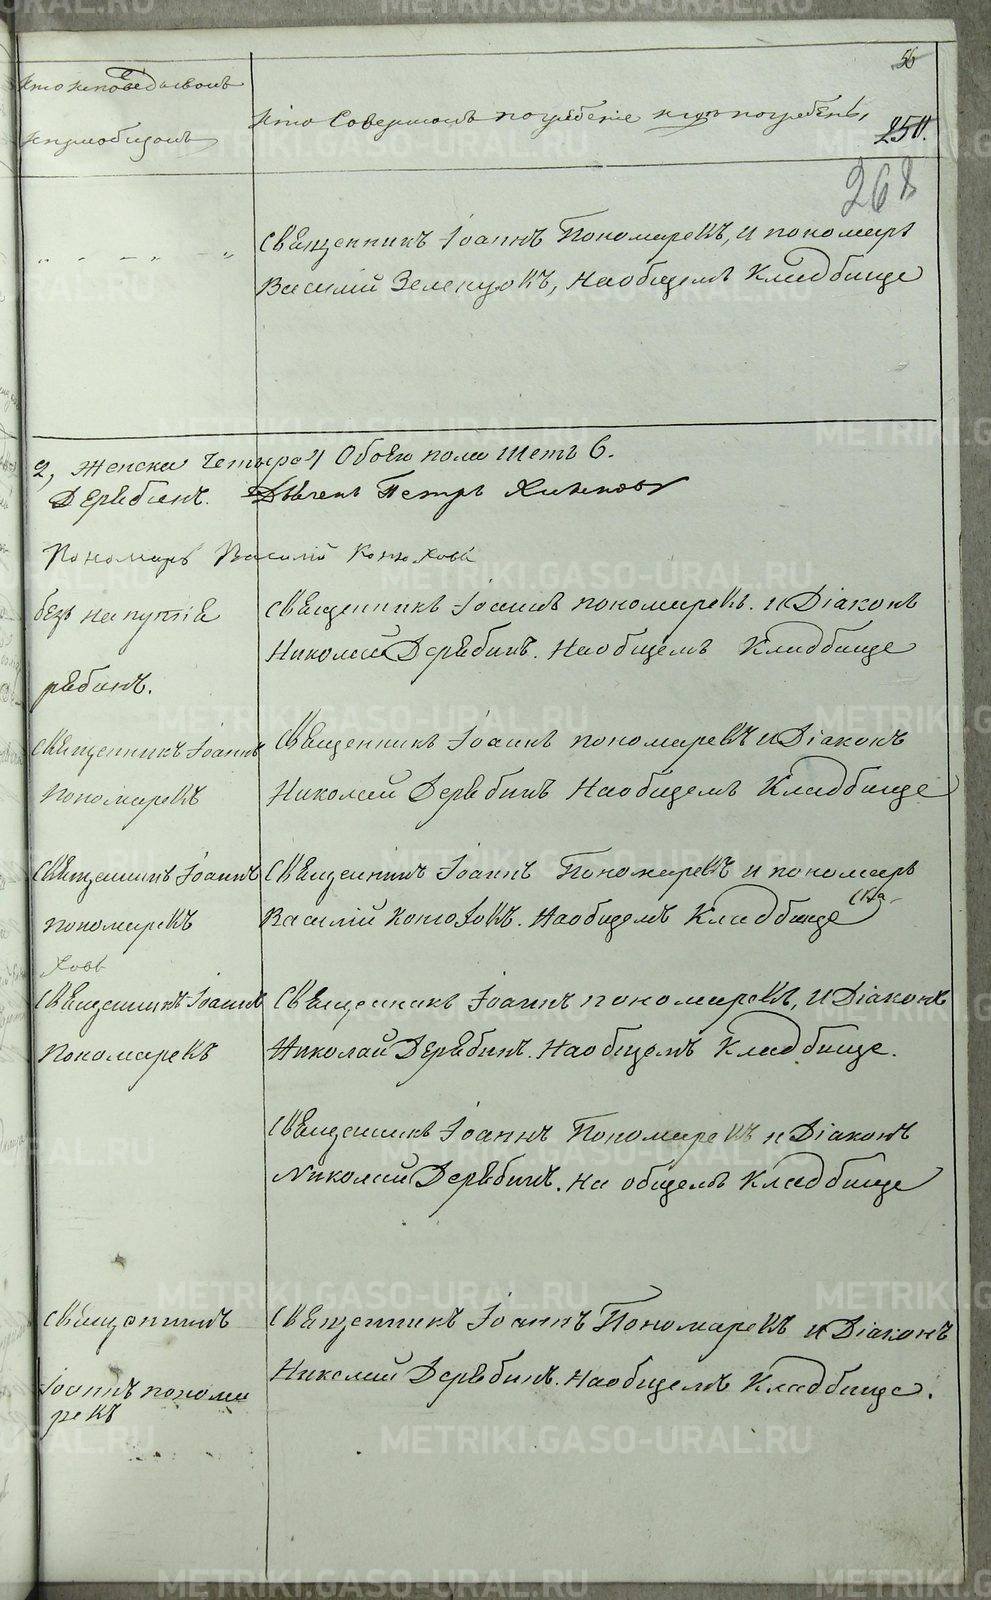 56
Кто исповедывалъ
и приобщалъ
Кто Совершалъ погребеніе и гдѣ погребенъ,
250.
268
Священникъ Іоаннъ Пономаревъ, и пономарь
Василій Зеленцовъ, На общемъ Кладбище
2, Женска Четыре 4 Обоего пола шеть 6.
Дерябинъ. Дьячекъ Петръ
Пономарь Василій Конюховъ
безъ напутія
Священникъ Іоаннъ пономаревъ. и Діаконъ
Николай Дерябинъ. На общемъ Кладбище
рябинъ.
Священникъ Іоаннъ
Пономаревъ
Священникъ Іоаннъ пономаревъ и Діаконъ
Николай Дерябинъ На общемъ Кладбище
Священникъ Іоаннъ
пономаревъ
Священникъ Іоаннъ Пономаревъ и пономарь
Василій Конюховъ. На общемъ Кладбище
ховъ
Священникъ Іоаннъ
Пономаревъ
Священникъ Іоаннъ пономаревъ, и Діаконъ
Николай Дерябинъ. На общемъ Кладбище.
Священникъ Іоаннъ Пономаревъ и Діаконъ
Николай Дерябинъ. На общемъ Кладбище
Священникъ
Іоаннъ понома
ревъ
Священникъ Іоаннъ Пономаревъ и Діаконъ
Николай Дерябинъ. На общемъ Кладбище.
METRIKI.GASO-URAL.RU